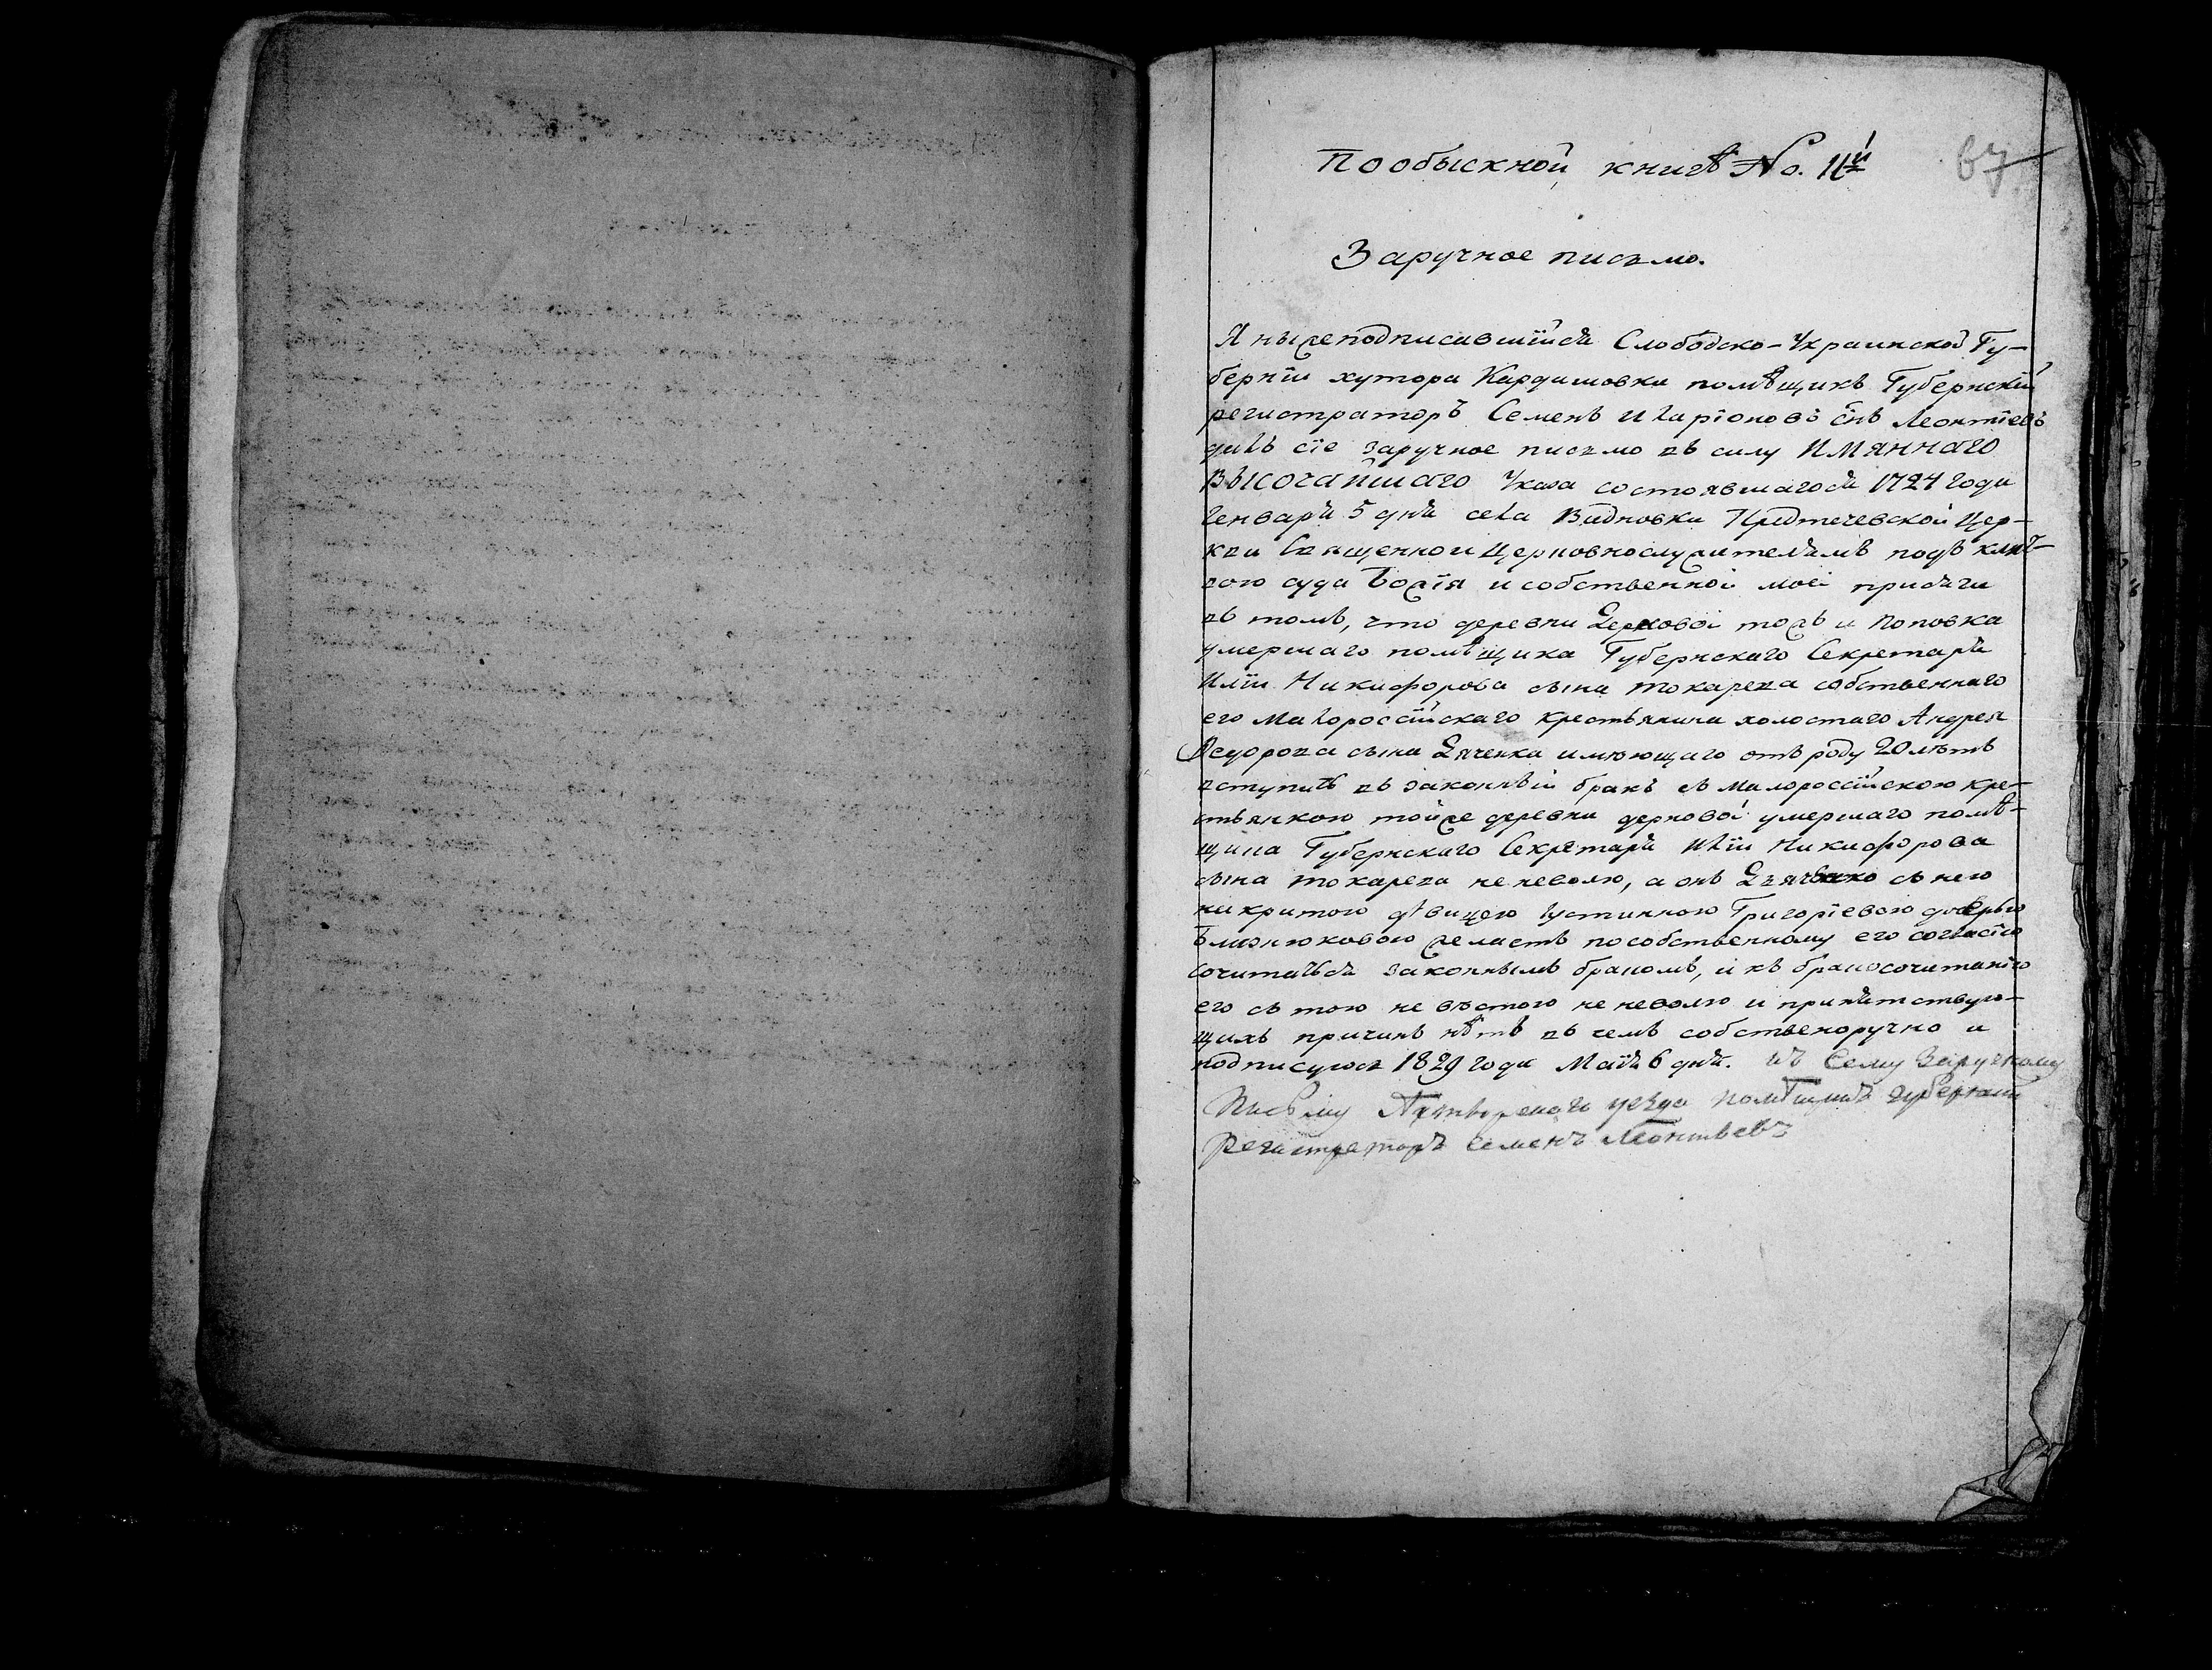 Пообыскной книгѣ No. 11й
67
Заручное писмо.
Я нижеподписавшійся Слободско-Украинской Гу-
берніи хутора Кардашовки помѣщикъ Губернскій
регистраторъ Семенъ Иларіоновъ снъ Леонтіевъ
далъ сіе заручное писмо въ силу ИМЯННАГО
ВЫСОЧАЙШАГО Указа состоявшагося 1724 года
Генваря 5 дня села Предтечевской Цер-
кви Священно и Церковнослужителямъ подъ клят-
вою суда Божія и собственной моей присяги
въ томъ, что деревни Дерновой тожъ и Поповка
умершаго помѣщика Губернскаго Секретаря
Иліи Никифорова сына Токарева собственнаго
его Малороссійскаго крестьянина холостаго Андрея
Ѳедорова сына Дяченка имѣющаго отъ роду 20 лѣтъ
вступить въ законный бракъ съ малороссійскою кре-
стьянкою тойже деревни дерновой умершаго помѣ-
щика Губернскаго Секретаря Иліи Никифорова
сына Токарева не неволю, а онъ Дяченко съ нею
накритою дѣвицею Іустинною Григоріевою дочерью
Близнюковою желаетъ пособственному его согласію
сочиталься законнымъ бракомъ, и къ бракосочетанію
его съ тою невѣстою не неволю и препятствую-
щихъ причинъ нѣтъ въ чемъ собственоручно и
подписуюсь 1829 года Маія 6 дня. къ Сему Заручному
Писмму Ахтырскаго уезда помѣщикъ губернский
Регистраторъ Семенъ Леонтьевъ